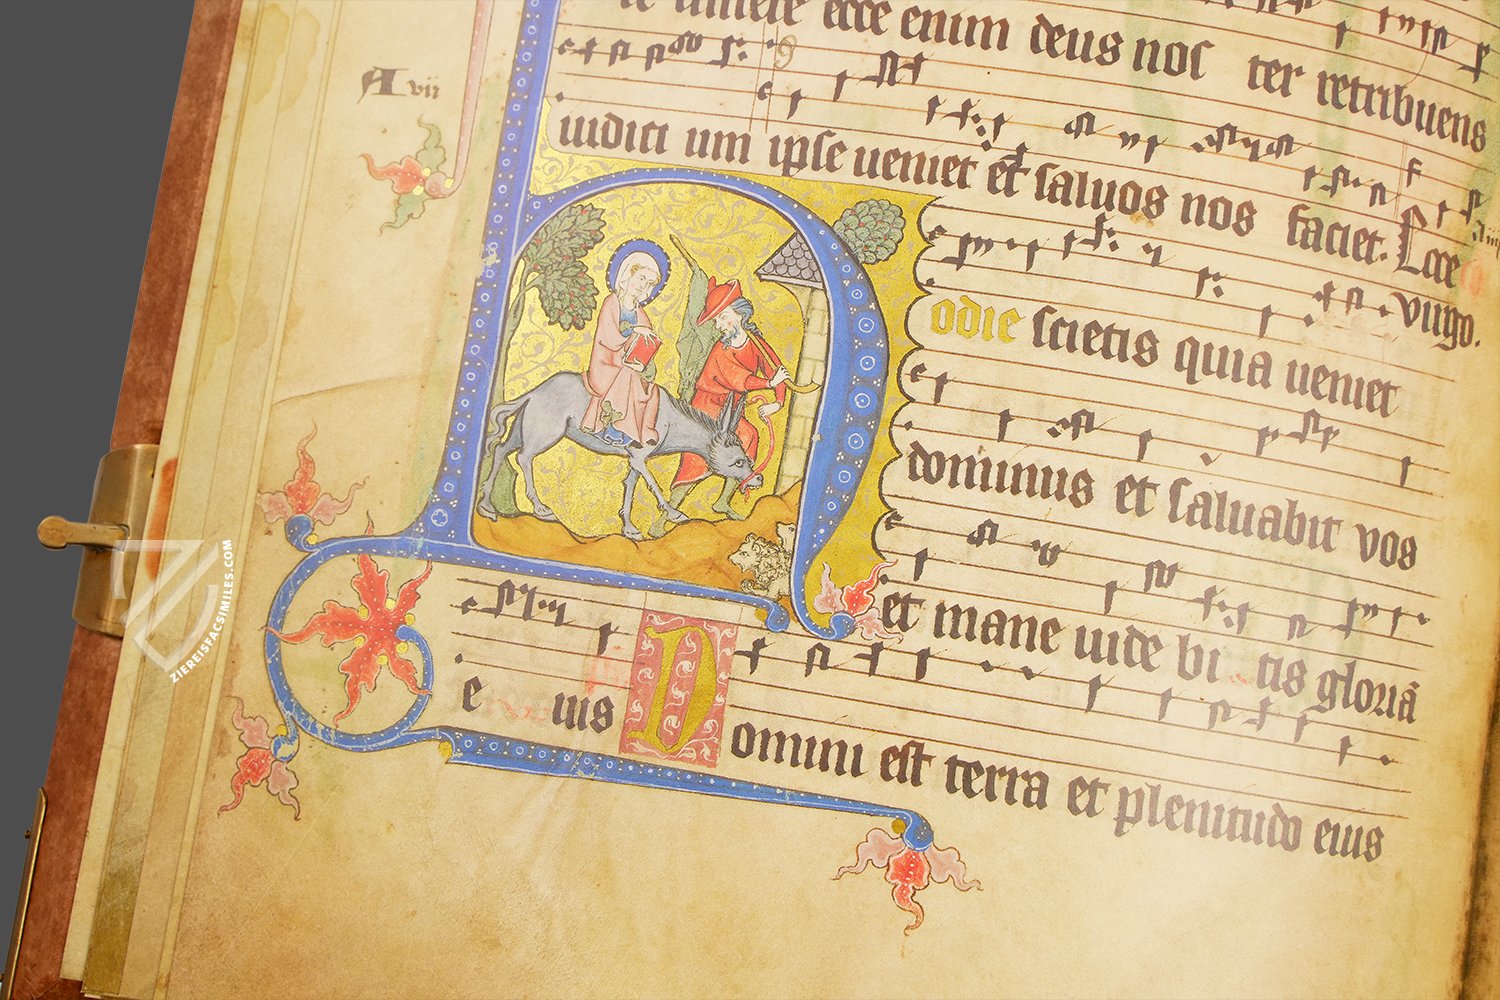 timere ecce enim deus nos ter retribuens
A vii
iudici um ipse ueniet et saluos nos faciet. Ecce
uirgo.
Hodie scietis quia ueniet
dominus et saluabit vos
et mane uide bi tis gloriã
e ius Domini est terra et plenitudo eius
ZIEREISFACSIMILES.COM